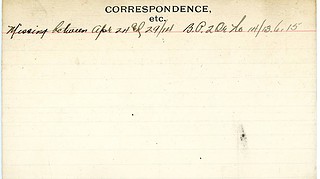 CORRESPONDENCE,
etc.
Missing between Apr 24 & 29/14 B.P. 2 De Lo 14/13.6.15